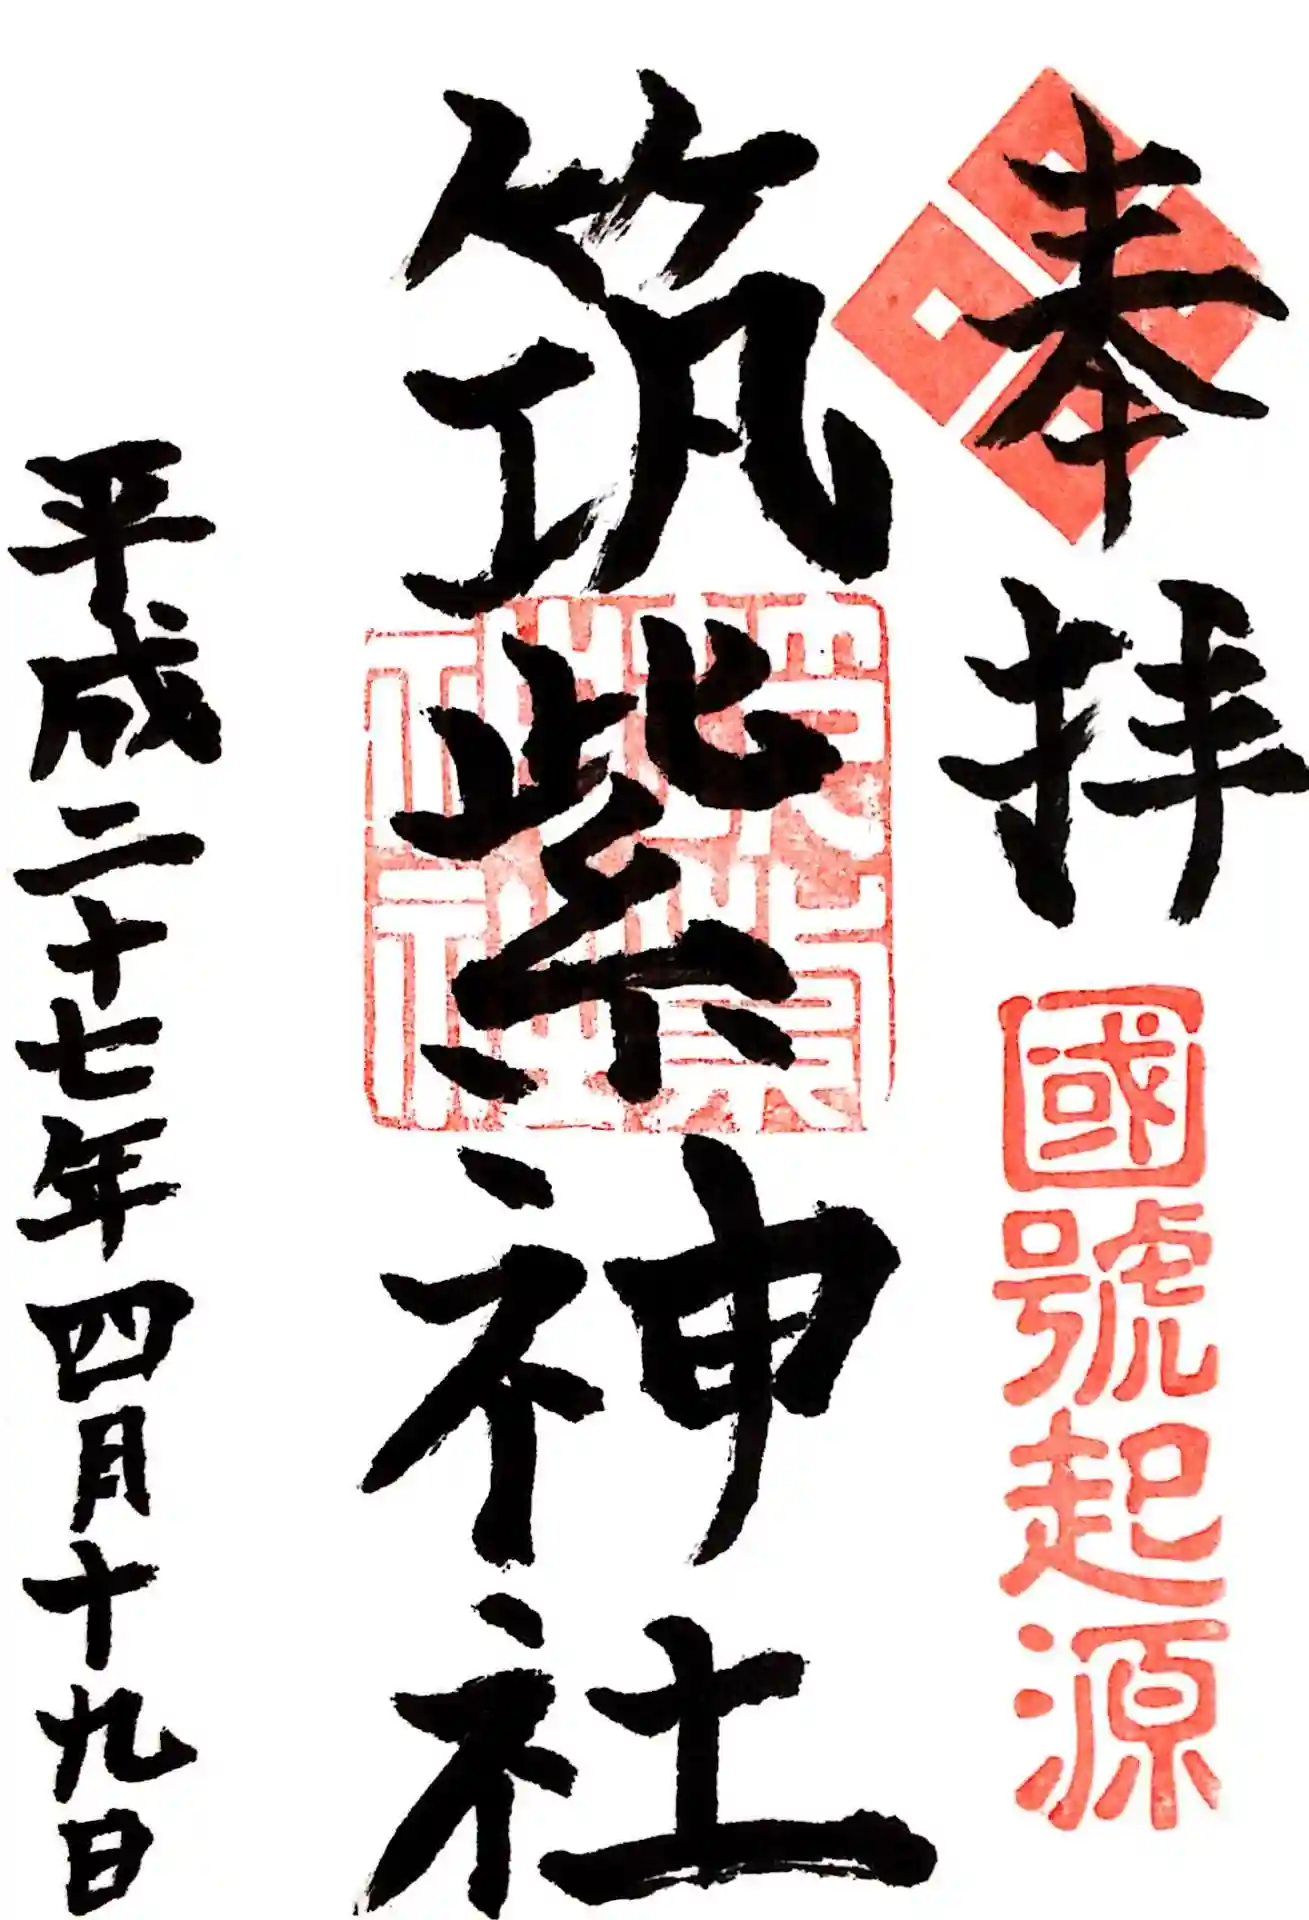 奉拝
國號起源
筑紫神社
平成二十七年四月十九日